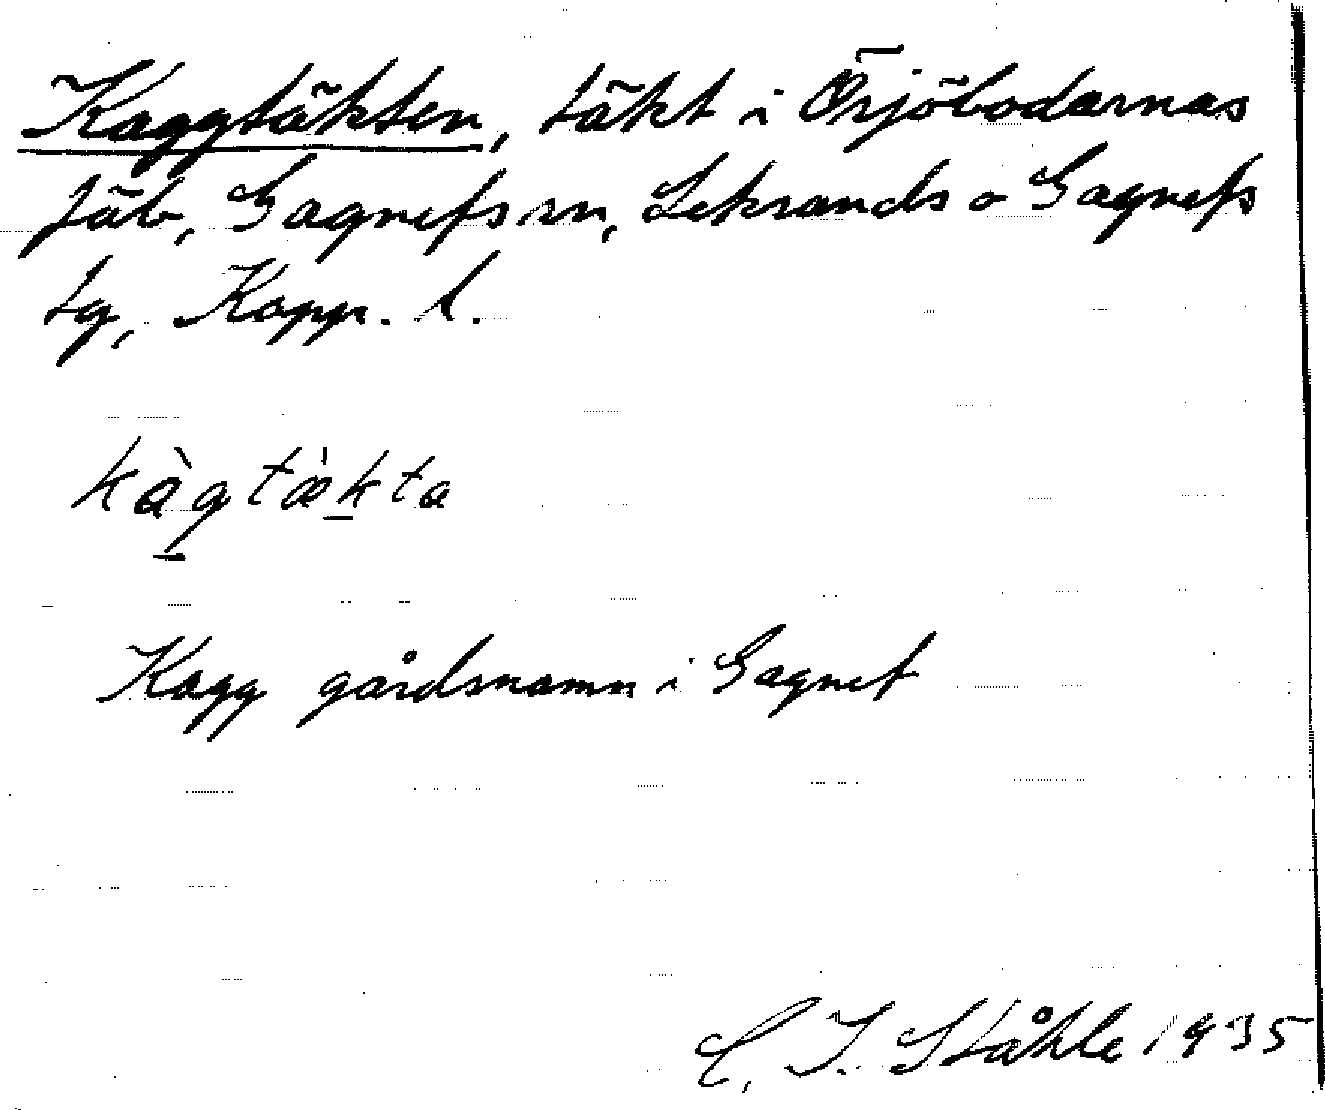 Kaggtäkten, täkt i Örjöbodarnas
fäb, Gagnefs sn, Leksands o Gagnefs
tg, Kopp. l.
kàgtæ̀kta
Kagg gårdsnamn i Gagnef
C. I. Ståhle 1935